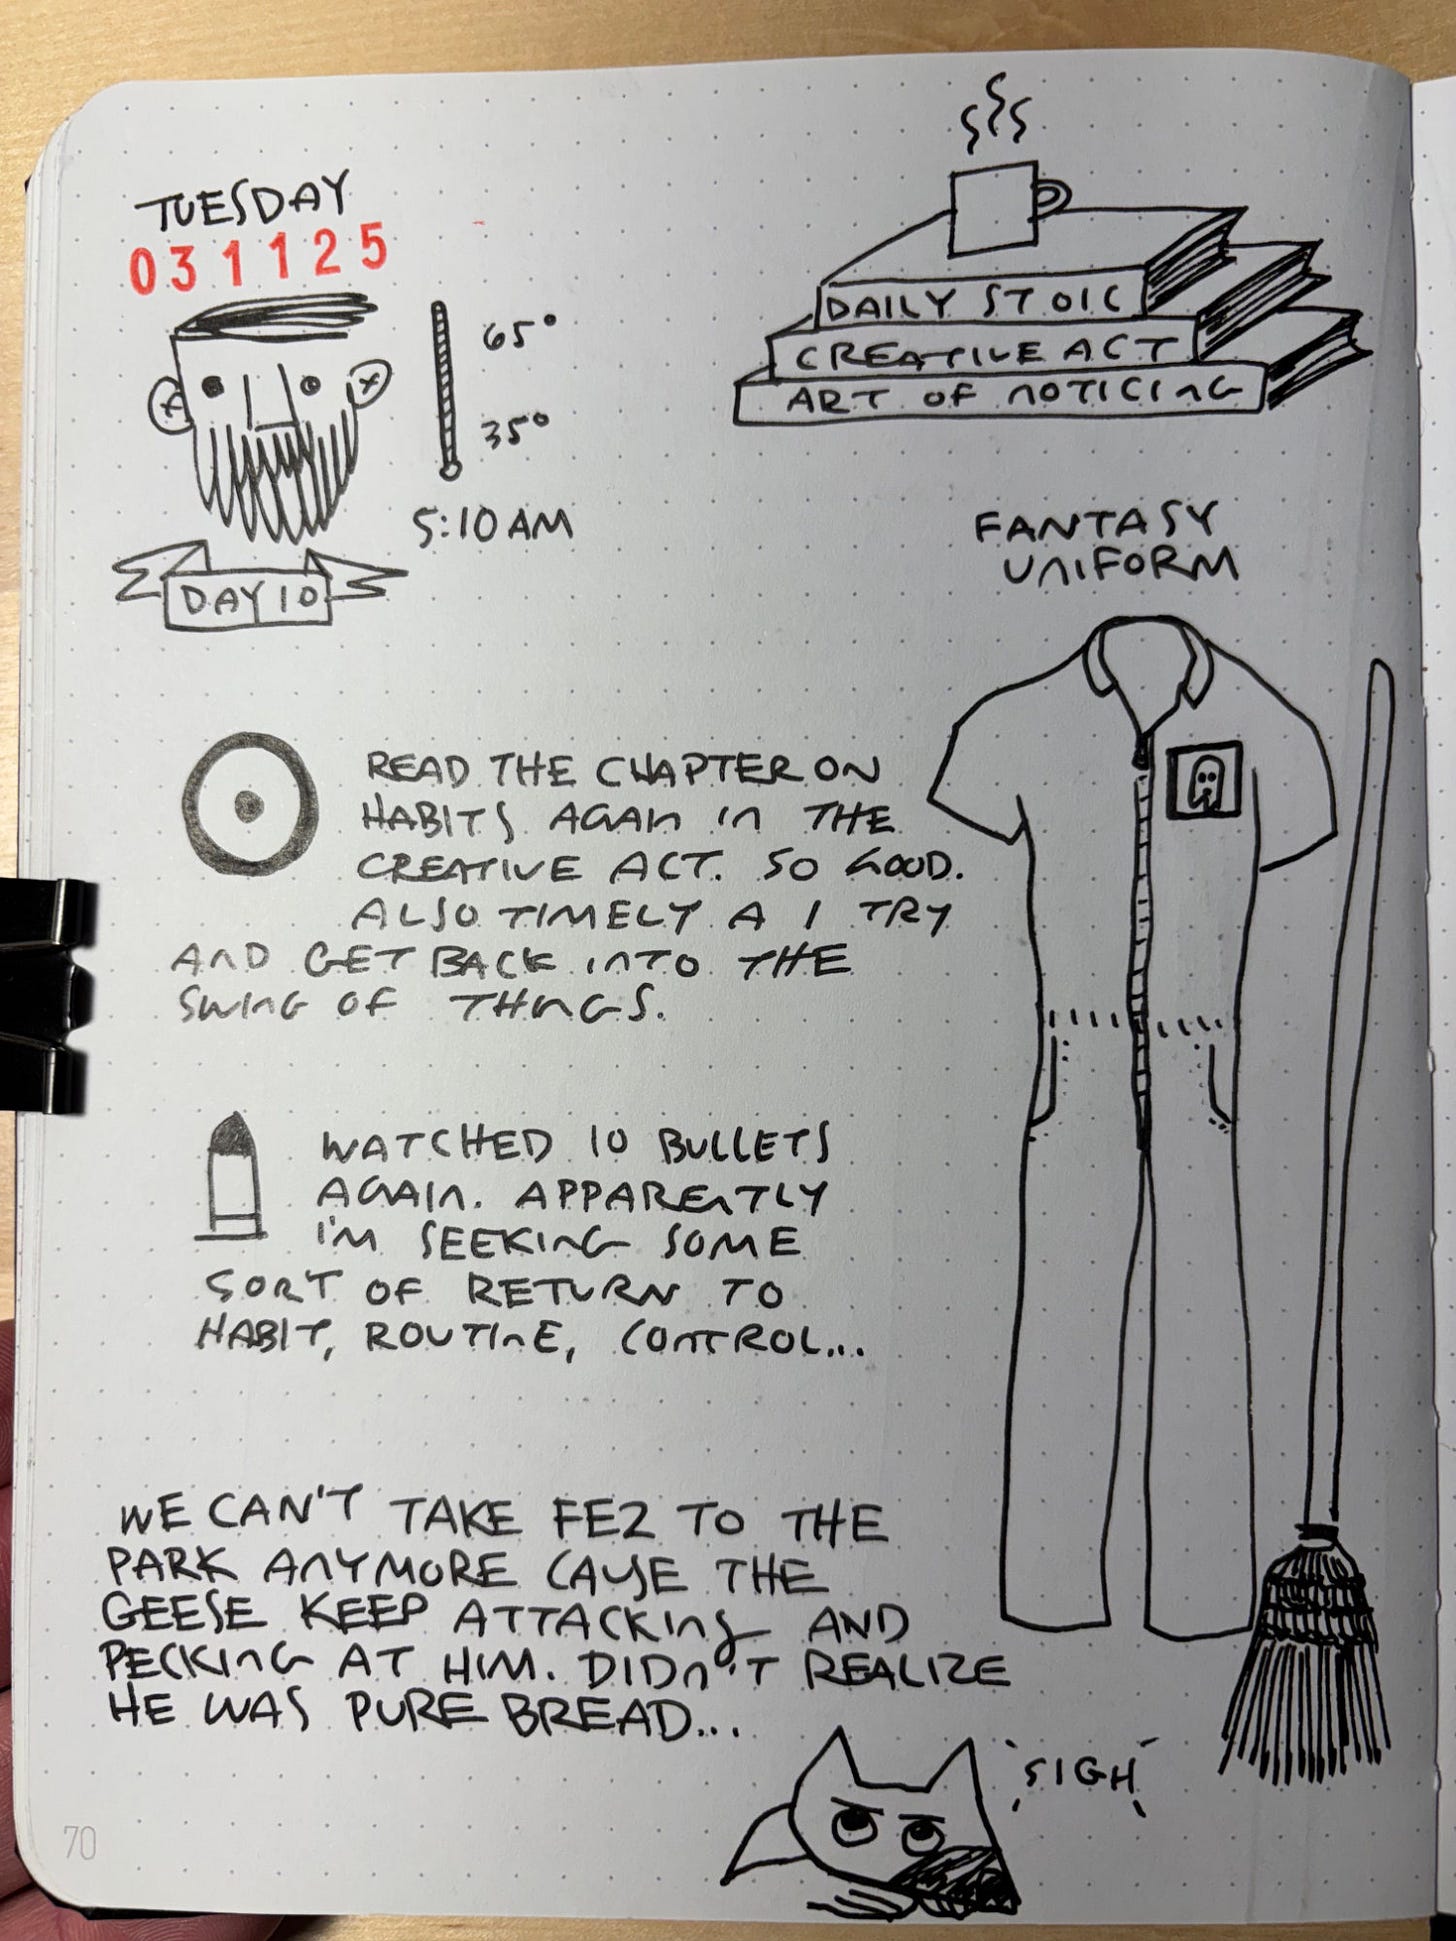 TUESDAY
031125
65°
35°
5:10 AM
DAY 10
DAILY STOIC
CREATIVE ACT
ART OF NOTICING
FANTASY
UNIFORM
READ THE CHAPTER ON
HABITS AGAIN IN THE
CREATIVE ACT. SO GOOD.
ALSO TIMELY A I TRY
AND GET BACK INTO THE
SWING OF THNGS.
WATCHED 10 BULLETS
AGAIN. APPARENTLY
I'M SEEKING SOME
SORT OF RETURN TO
HABIT, ROUTINE, CONTROL...
WE CAN'T TAKE FEZ TO THE
PARK ANYMORE CAUSE THE
GEESE KEEP ATTACKING AND
PECKING AT HIM. DIDN'T REALIZE
HE WAS PURE BREAD...
SIGH
70